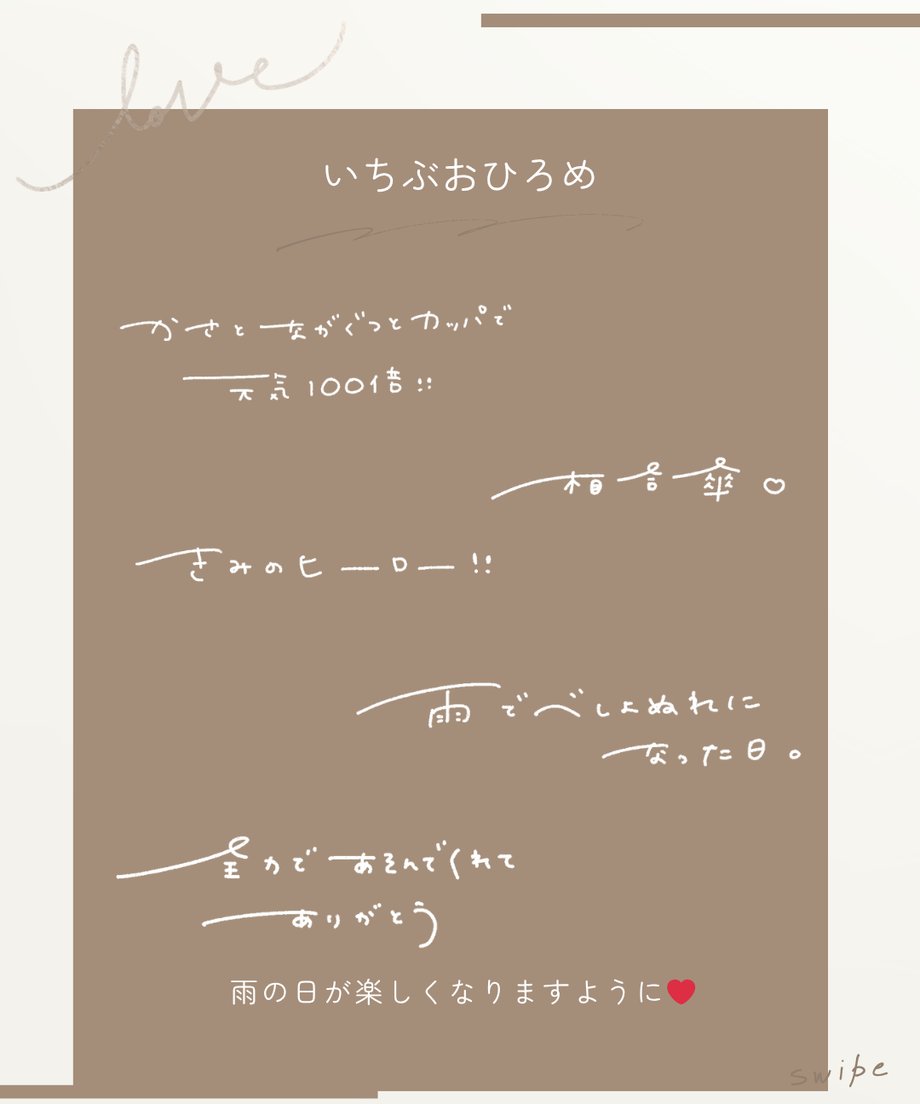 love
いちぶおひろめ
かさとながぐつとカッパで
元気100倍!!
相合傘♡
きみのヒーロー!!
雨でべしょぬれに
なった日。
全力であそんでくれて
ありがとう
雨の日が楽しくなりますように❤
swipe